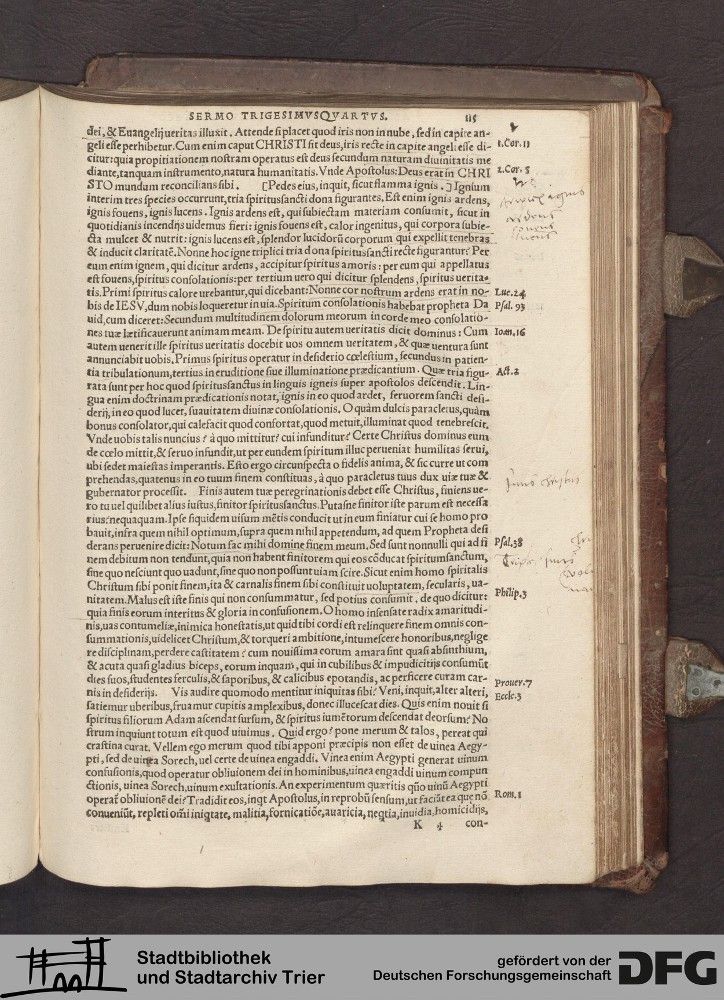 SERMO TRIGESIMVSQVARTVS. 115
dei, & Euangelij ueritas illuxit. Attende si placet quod iris non in nube, sed in capite an-
geli esse perhibetur. Cum enim caput CHRISTI sit deus, iris recte in capite angeli esse di-
citur: quia propitiationem nostram operatus est deus secundum naturam diuinitatis me
diante, tanquam instrumento, natura humanitatis. Vnde Apostolus: Deus erat in CHRI
STO mundum reconcilians sibi. [Pedes eius, inquit, sicut flamma ignis.] Ignium
interim tres species occurrunt, tria spiritussancti dona figurantes, Est enim ignis ardens,
ignis fouens, ignis lucens. Ignis ardens est, qui subiectam materiam consumit, sicut in
quotidianis incendijs uidemus fieri: ignis fouens est, calor ingenitus, qui corpora subie-
cta mulcet & nutrit: ignis lucens est, splendor lucidorū corporum qui expellit tenebras
& inducit claritatē. Nonne hoc igne triplici tria dona spiritussancti recte figurantur? Per
eum enim ignem, qui dicitur ardens, accipitur spiritus amoris: per eum qui appellatus
est fouens, spiritus consolationis: per tertium uero qui dicitur splendens, spiritus uerita-
tis. Primi spiritus calore urebantur, qui dicebant: Nonne cor nostrum ardens erat in no-
bis de IESV, dum nobis loqueretur in uia. Spiritum consolationis habebat propheta Da
uid, cum diceret: Secundum multitudinem dolorum meorum in corde meo consolatio-
nes tuæ lætificauerunt animam meam. De spiritu autem ueritatis dicit dominus: Cum
autem uenerit ille spiritus ueritatis docebit uos omnem ueritatem, & quæ uentura sunt
annunciabit uobis. Primus spiritus operatur in desiderio cœlestium, secundus in patien-
tia tribulationum, tertius in eruditione siue illuminatione prædicantium. Quæ tria figu-
rata sunt per hoc quod spiritussanctus in linguis igneis super apostolos descendit. Lin-
gua enim doctrinam prædicationis notat, ignis in eo quod ardet, feruorem sancti desi-
derij, in eo quod lucet, suauitatem diuinæ consolationis. O quàm dulcis paracletus, quàm
bonus consolator, qui calefacit quod confortat, quod metuit, illuminat quod tenebrescit.
Vnde uobis talis nuncius? à quo mittitur? cui infunditur? Certe Christus dominus eum
de cœlo mittit, & seruo infundit, ut per eundem spiritum illuc perueniat humilitas serui,
ubi sedet maiestas imperantis. Esto ergo circunspecta o fidelis anima, & sic curre ut com
prehendas, quatenus in eo tuum finem constituas, à quo paracletus tuus dux uiæ tuæ &
gubernator processit. Finis autem tuæ peregrinationis debet esse Christus, finiens ue-
ro tu uel quilibet alius iustus, finitor spiritussanctus. Putasne finitor iste parum est necessa
rius? nequaquam. Ipse siquidem uisum mētis conducit ut in eum finiatur cui se homo pro
bauit, infra quem nihil optimum, supra quem nihil appetendum, ad quem Propheta desi
derans peruenire dicit: Notum fac mihi domine finem meum. Sed sunt nonnulli qui ad fi
nem debitum non tendunt, quia non habent finitorem qui eos cōducat spiritumsanctum,
sine quo nesciunt quo uadunt, sine quo non possunt uiam scire. Sicut enim homo spiritalis
Christum sibi ponit finem, ita & carnalis finem sibi constituit uoluptatem, secularis, ua-
nitatem. Malus est iste finis qui non consummatur, sed potius consumit. de quo dicitur:
quia finis eorum interitus & gloria in confusionem. O homo insensate radix amaritudi-
nis, uas contumeliæ, inimica honestatis, ut quid tibi cordi est relinquere finem omnis con-
summationis, uidelicet Christum, & torqueri ambitione, intumescere honoribus, neglige
re disciplinam, perdere castitatem? cum nouissima eorum amara sint quasi absinthium,
& acuta quasi gladius biceps, eorum inquam, qui in cubilibus & impudicitijs consumūt
dies suos, studentes ferculis, & saporibus, & calicibus epotandis, ac perficere curam car-
nis in desiderijs. Vis audire quomodo mentitur iniquitas sibi? Veni, inquit, alter alteri,
satiemur uberibus, fruamur cupitis amplexibus, donec illucescat dies. Quis enim nouit si
spiritus filiorum Adam ascendat sursum, & spiritus iumētorum descendat deorsum? No
strum inquiunt totum est quod uiuimus. Quid ergo? pone merum & talos, pereat qui
crastina curat. Vellem ego merum quod tibi apponi præcipis non esset de uinea Aegy-
pti, sed de uinea Sorech, uel certe de uinea engaddi. Vinea enim Aegypti generat uinum
confusionis, quod operatur obliuionem dei in hominibus, uinea engaddi uinum compun
ctionis, uinea Sorech, uinum exultationis. An experimentum quæritis quō uinū Aegypti
operat̄ obliuionē dei? Tradidit eos, inqt Apostolus, in reprobū sensum, ut faciāt ea quę nō
conueniūt, repleti om̄i iniqtate, malitia, fornicatiōe, auaricia, neqtia, inuidia, homicidijs,
K 4 con-
1. Cor. 11
2. Cor. 5
Luc. 24
Psal. 93
Ioan. 16
Act. 2
Psal. 38
Philip. 3
Prouer. 7
Eccle. 3
Rom. 1
ardens
fouens
lucens
Stadtbibliothek
und Stadtarchiv Trier
gefördert von der
Deutschen Forschungsgemeinschaft
DFG